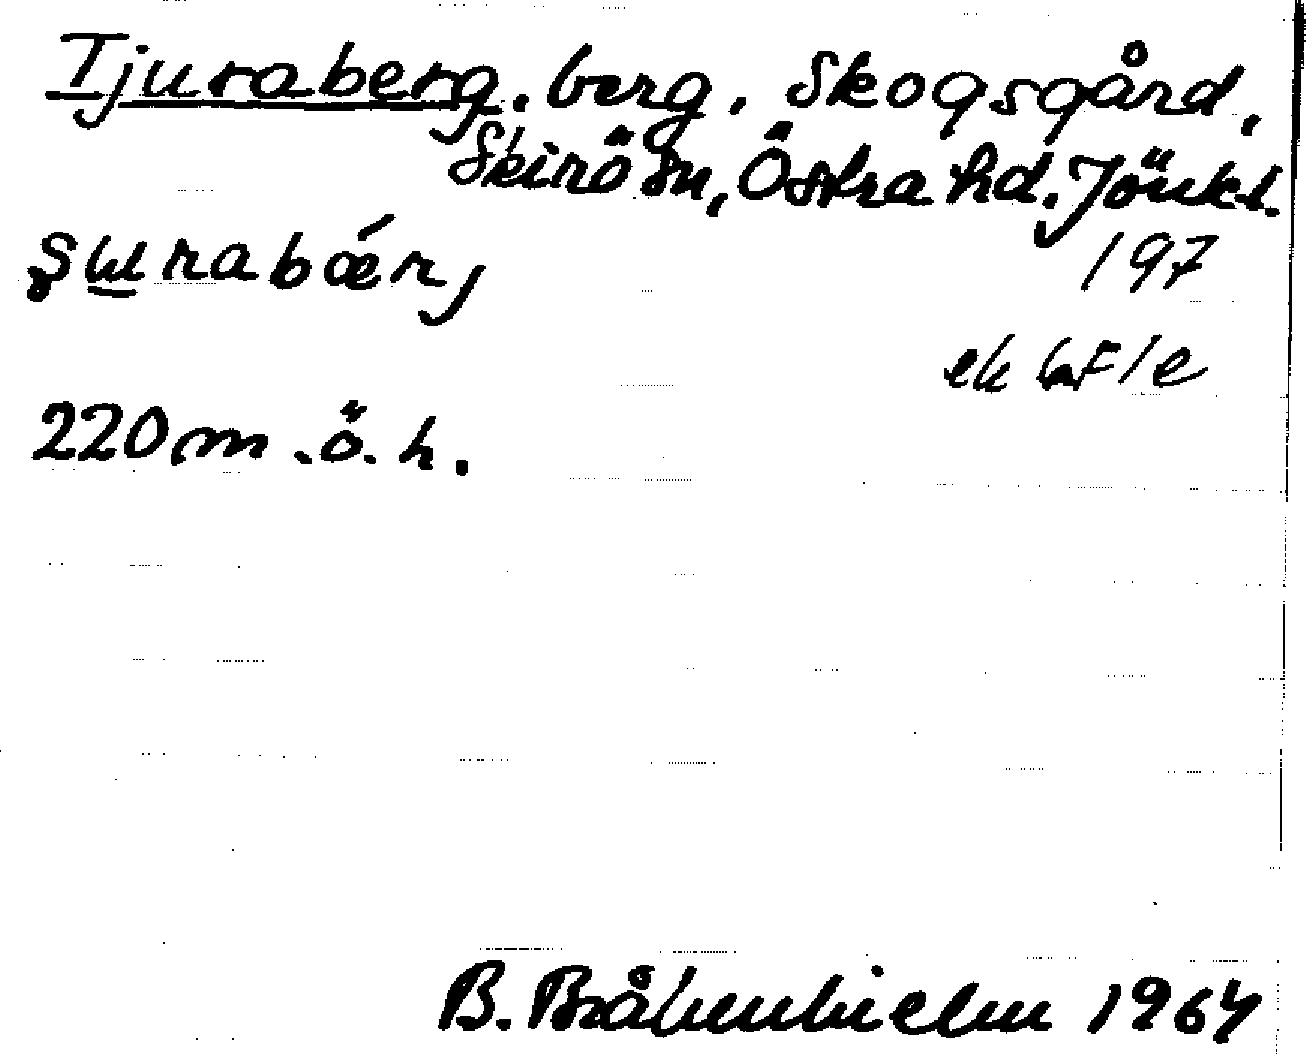 Tjuraberg. berg, Skogsgård,
Skirö sn, Östra hd. Jönk l.
ʂɯrabǽrj
197
ek bf/e
220 m .ö. h.
B. Bråkenhielm 1964